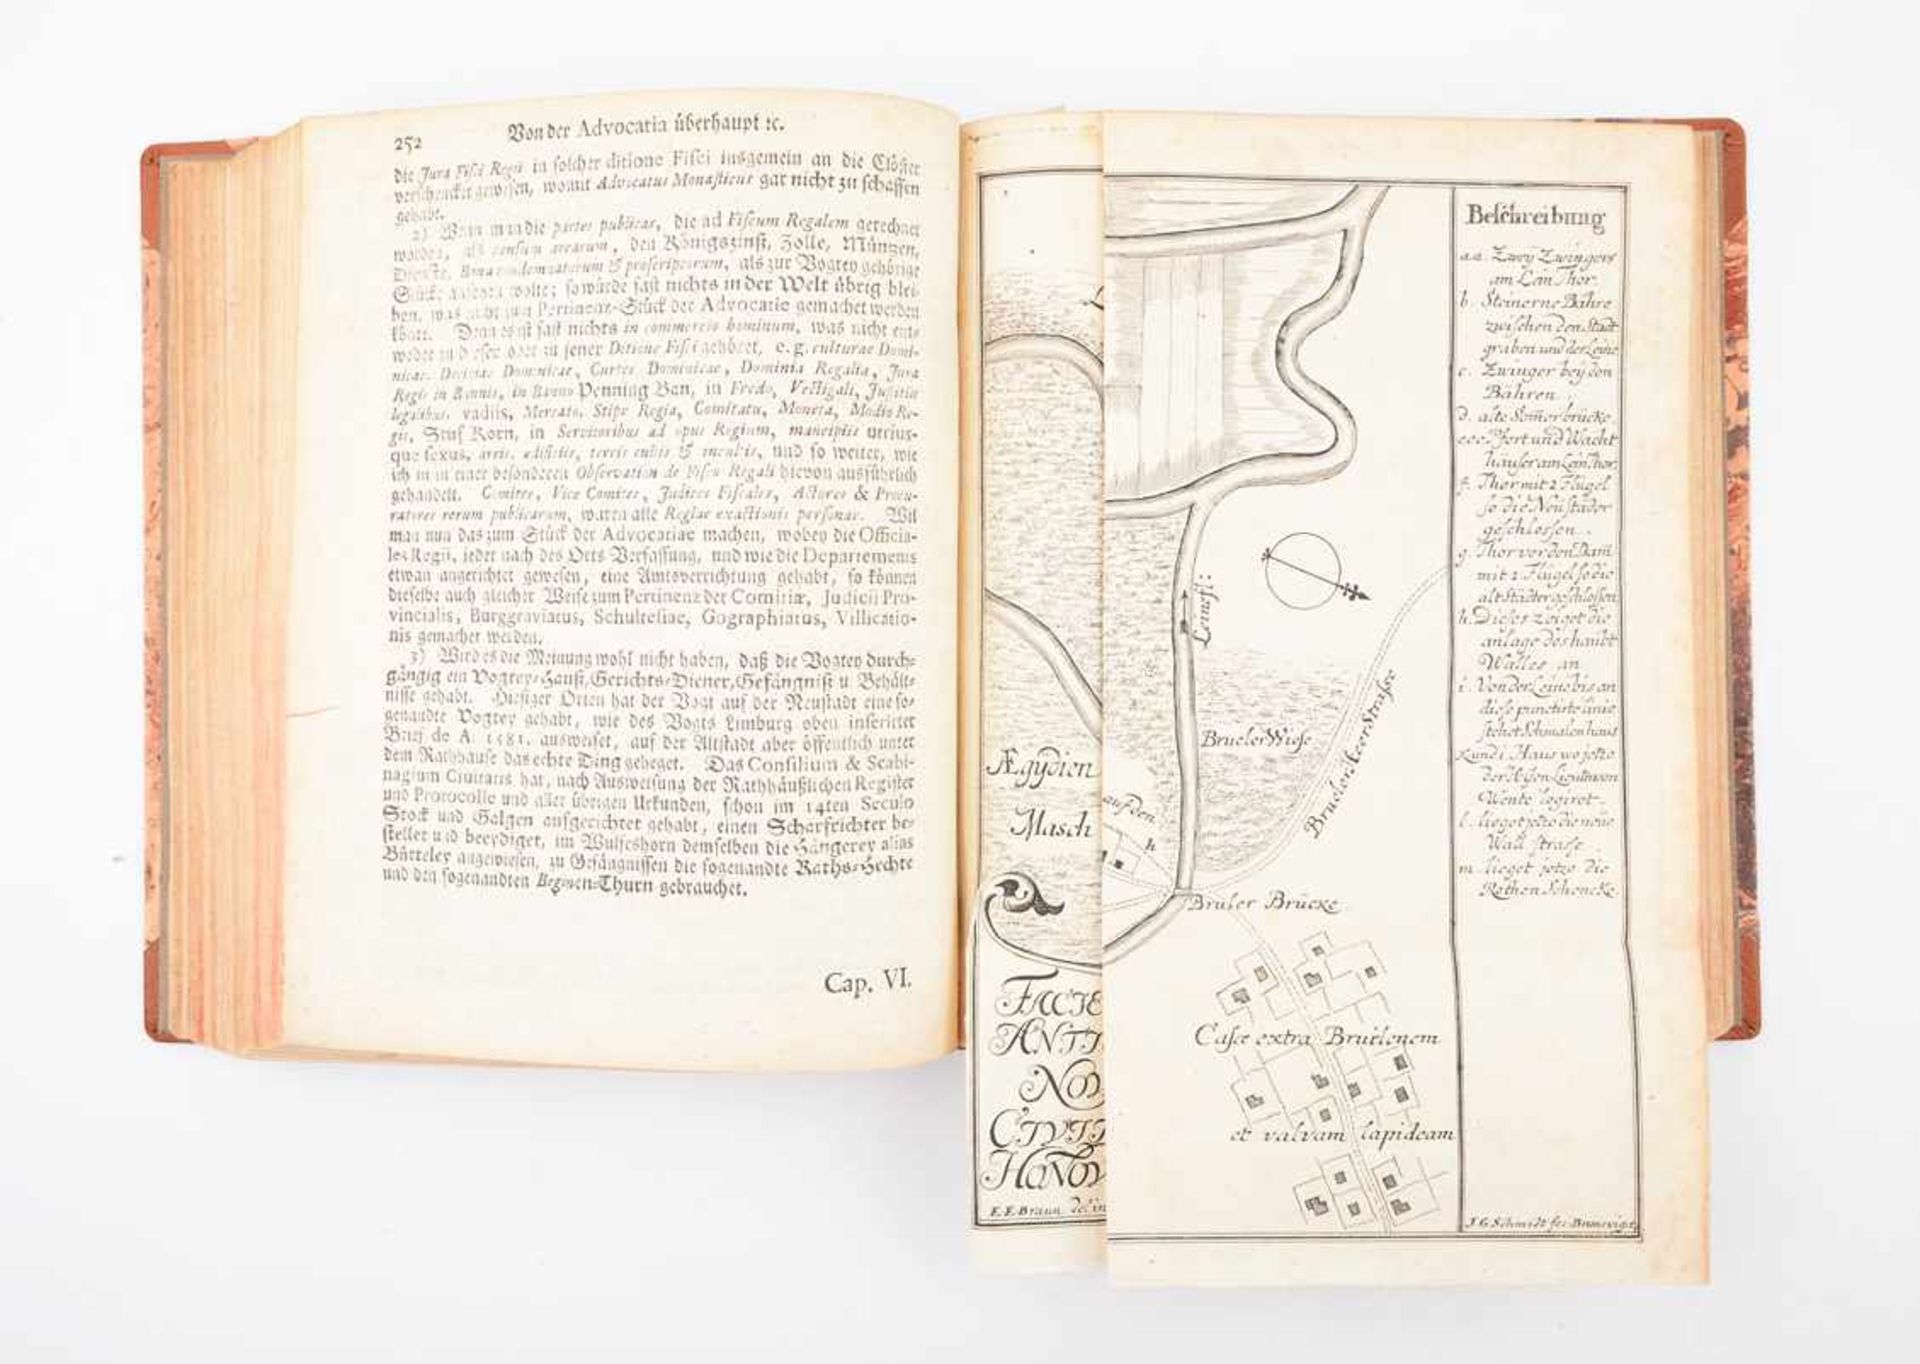 252 Von der Advocatia überhaupt ꝛc.
die Jura Fisci Regii in solcher ditione Fisci insgemein an die Clöster
verschencket gewesen, womit Advocatus Monasticus gar nicht zu schaffen
gehabt.
2) Wenn man die partes publicas, die ad Fiscum Regalem gerechnet
worden, als censum arearum, den Königszinß, Zolle, Müntzen,
Dienste, Bona condemnatorum & proscriptorum, als zur Vogtey gehörige
Stücke ansehen wolte; so würde fast nichts in der Welt übrig blei-
ben, was nicht zum Pertinenz-Stück der Advocatie gemachet werden
könte. Denn es ist fast nichts in commercio hominum, was nicht ent-
weder zu dieser oder zu jener Ditione Fisci gehöret, e. g. culturae Domi-
nicae, Decimae Dominicae, Curtes Dominicae, Dominia Regalia, Jura
Regis in Bannis, in Banno Penning Ban, in Fredo, Vectigali, Justitiis
legalibus, vadiis, Mercato, Stipe Regia, Comitatu, Moneta, Modio Re-
gii, Stuf Korn, in Servitoribus ad opus Regium, mancipiis utrius-
que sexus, areis, aedificiis, terris cultis & incultis, und so weiter, wie
ich in einer besonderen Observation de Fisco Regali hievon ausführlich
gehandelt. Comites, Vice Comites, Judices Fiscales, Actores & Procu-
ratores rerum publicarum, waren alle Regiae exactionis personae. Wil
man nun das zum Stück der Advocatiae machen, wobey die Officia-
les Regii, ieder nach des Orts Verfassung, und wie die Departements
etwan angerichtet gewesen, eine Amtsverrichtung gehabt, so können
dieselbe auch gleicher Weise zum Pertinenz der Comitiæ, Judicii Pro-
vincialis, Burggraviatus, Schultesiae, Gographiatus, Villicatio-
nis gemachet werden.
3) Wird es die Meinung wohl nicht haben, daß die Vogtey durch-
gängig ein Vogtey-Hauß, Gerichts-Diener, Gefängniß u Behält-
nisse gehabt. Hiesiger Orten hat der Vogt auf der Neustadt eine so-
genandte Vogtey gehabt, wie des Vogts Limburg oben inserirter
Brief de A. 1581. ausweiset, auf der Altstadt aber öffentlich unter
dem Rathhause das echte Ding geheget. Das Consilium & Scabi-
nagium Civitatis hat, nach Ausweisung der Rathhäußlichen Register
und Protocolle und aller übrigen Urkunden, schon im 14ten Seculo
Stock und Galgen aufgerichtet gehabt, einen Scharfrichter be-
stellet und beeydiget, im Wulfeshorn demselben die Hängerey alias
Bütteley angewiesen, zu Gefängnissen die sogenandte Raths-Hechte
und den sogenandten Beginen-Thurn gebrauchet.
Cap. VI.
Leinefl:
Brueler Wiese
Brueler Acer Strasse
Ægÿdien
Masch
auf den
h
Brüler Brücke
FACIE
ANTI
NOV
CIVIT
HANOV
E. E. Braun delin
Casæ extra Brulenem
et valvam lapideam
Beschreibung
a.a. Zweÿ Zwingers
am Lein Thor.
b. Steinerne Bähre
zwischen den Stadt
graben und der Leine
c. Zwinger beÿ den
Bähren
d. alte Somerbrücke
e.e.e. Pfort und Wacht
häuser am Lein thor.
f. Thor mit 2 Flügel
so die Neustäder
geschlossen.
g. Thor vor den Dam
mit 2 Flügel so die
altstädter geschlossen
h. Dieses zeiget die
anlage des haubt
Walles an
i. Von der Leine bis an
diese punctirte linie
stehet Schmalenhaus
K und i. Haus wo jetzo
der Lieutnon
Wente logiret.
l. lieget jetzo die neue
Wall strasse.
m. lieget jetzo die
Rothen Schencke.
J. G. Schmidt fec: Brunsvigæ